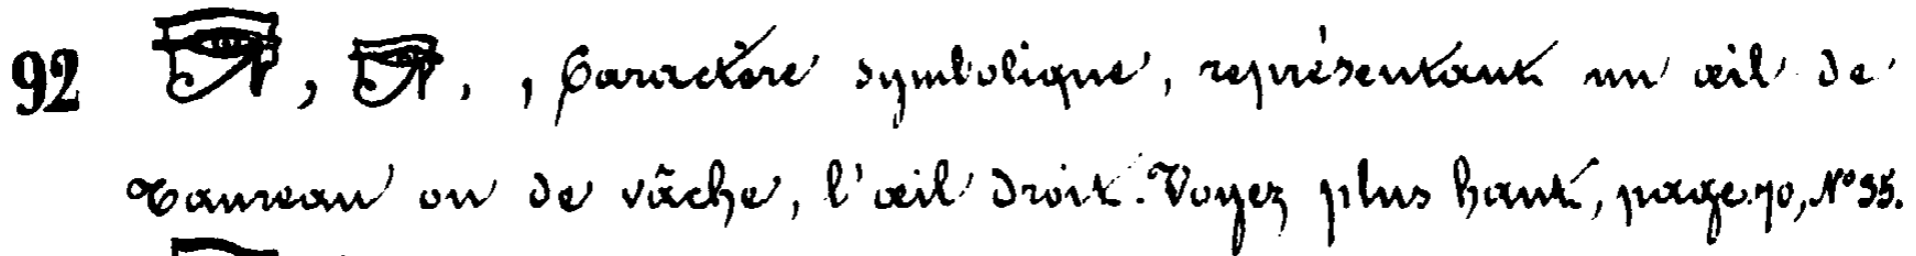 92 𓂀, 𓂀, , Caractère symbolique, représentant un œil de
Taureau ou de vâche, l'œil droit. Voyez plus haut, page 70, N° 55.